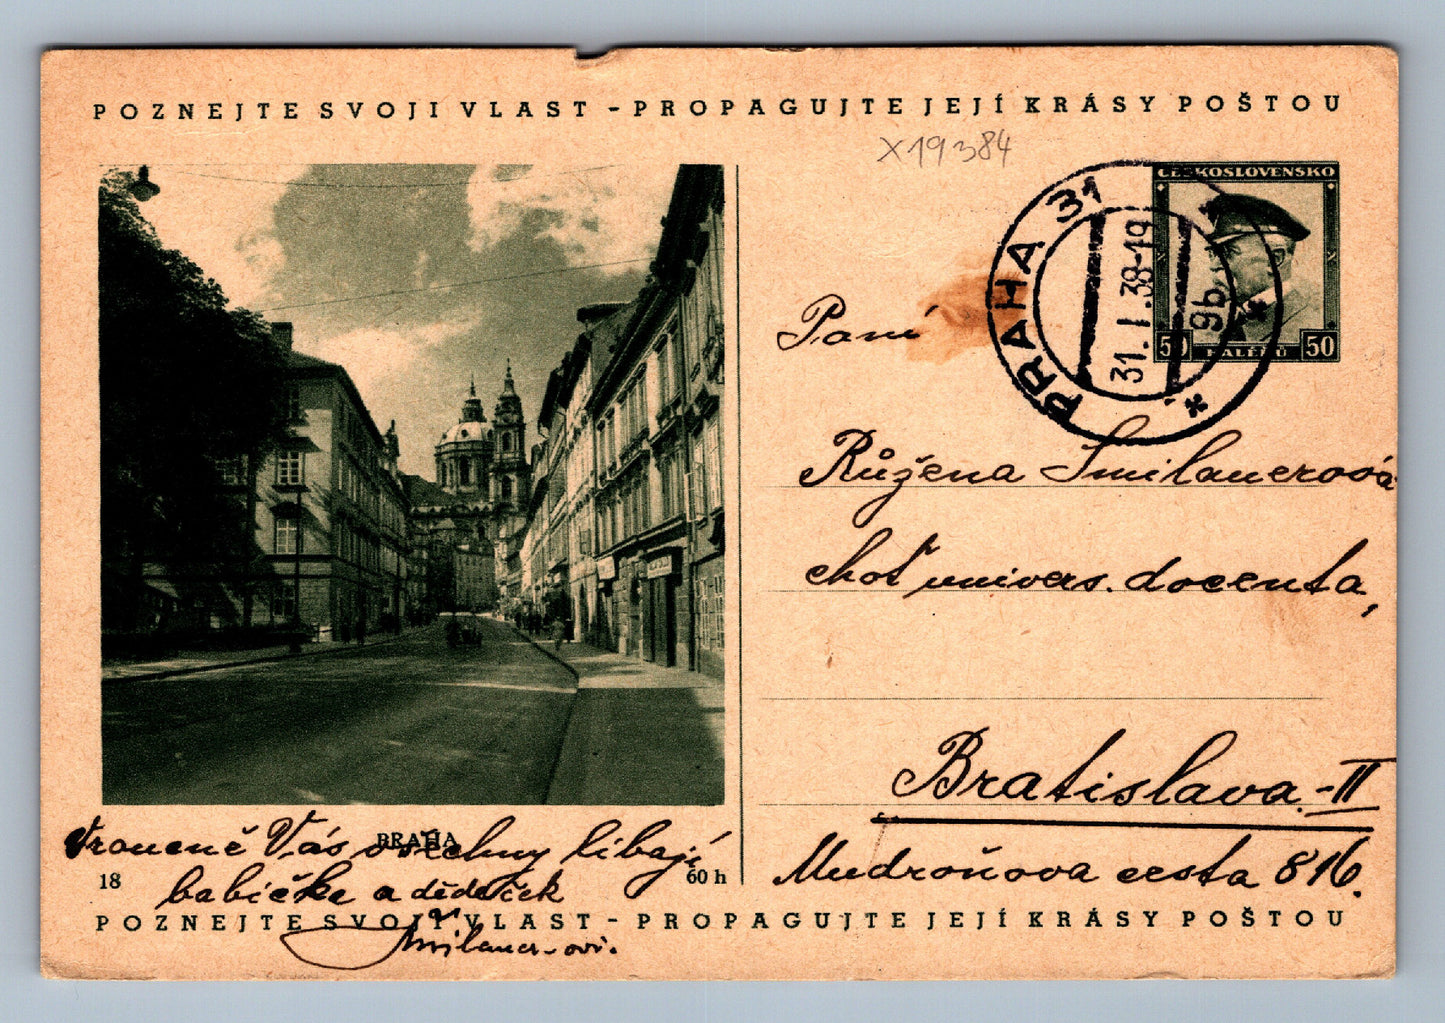 POZNEJTE SVOJI VLAST - PROPAGUJTE JEJÍ KRÁSY POŠTOU
X19384
ČESKOSLOVENSKO
50 HALÉŘŮ 50
PRAHA 31
31.I.38-19
9b
Paní
Růžena Smilauerová
choť univers. docenta,
Bratislava.-II
Mudroňova cesta 816.
PRAHA
Vroucně Vás všechny líbají
babička a dědeček
Smilauer-ovi.
18
60 h
POZNEJTE SVOJI VLAST - PROPAGUJTE JEJÍ KRÁSY POŠTOU